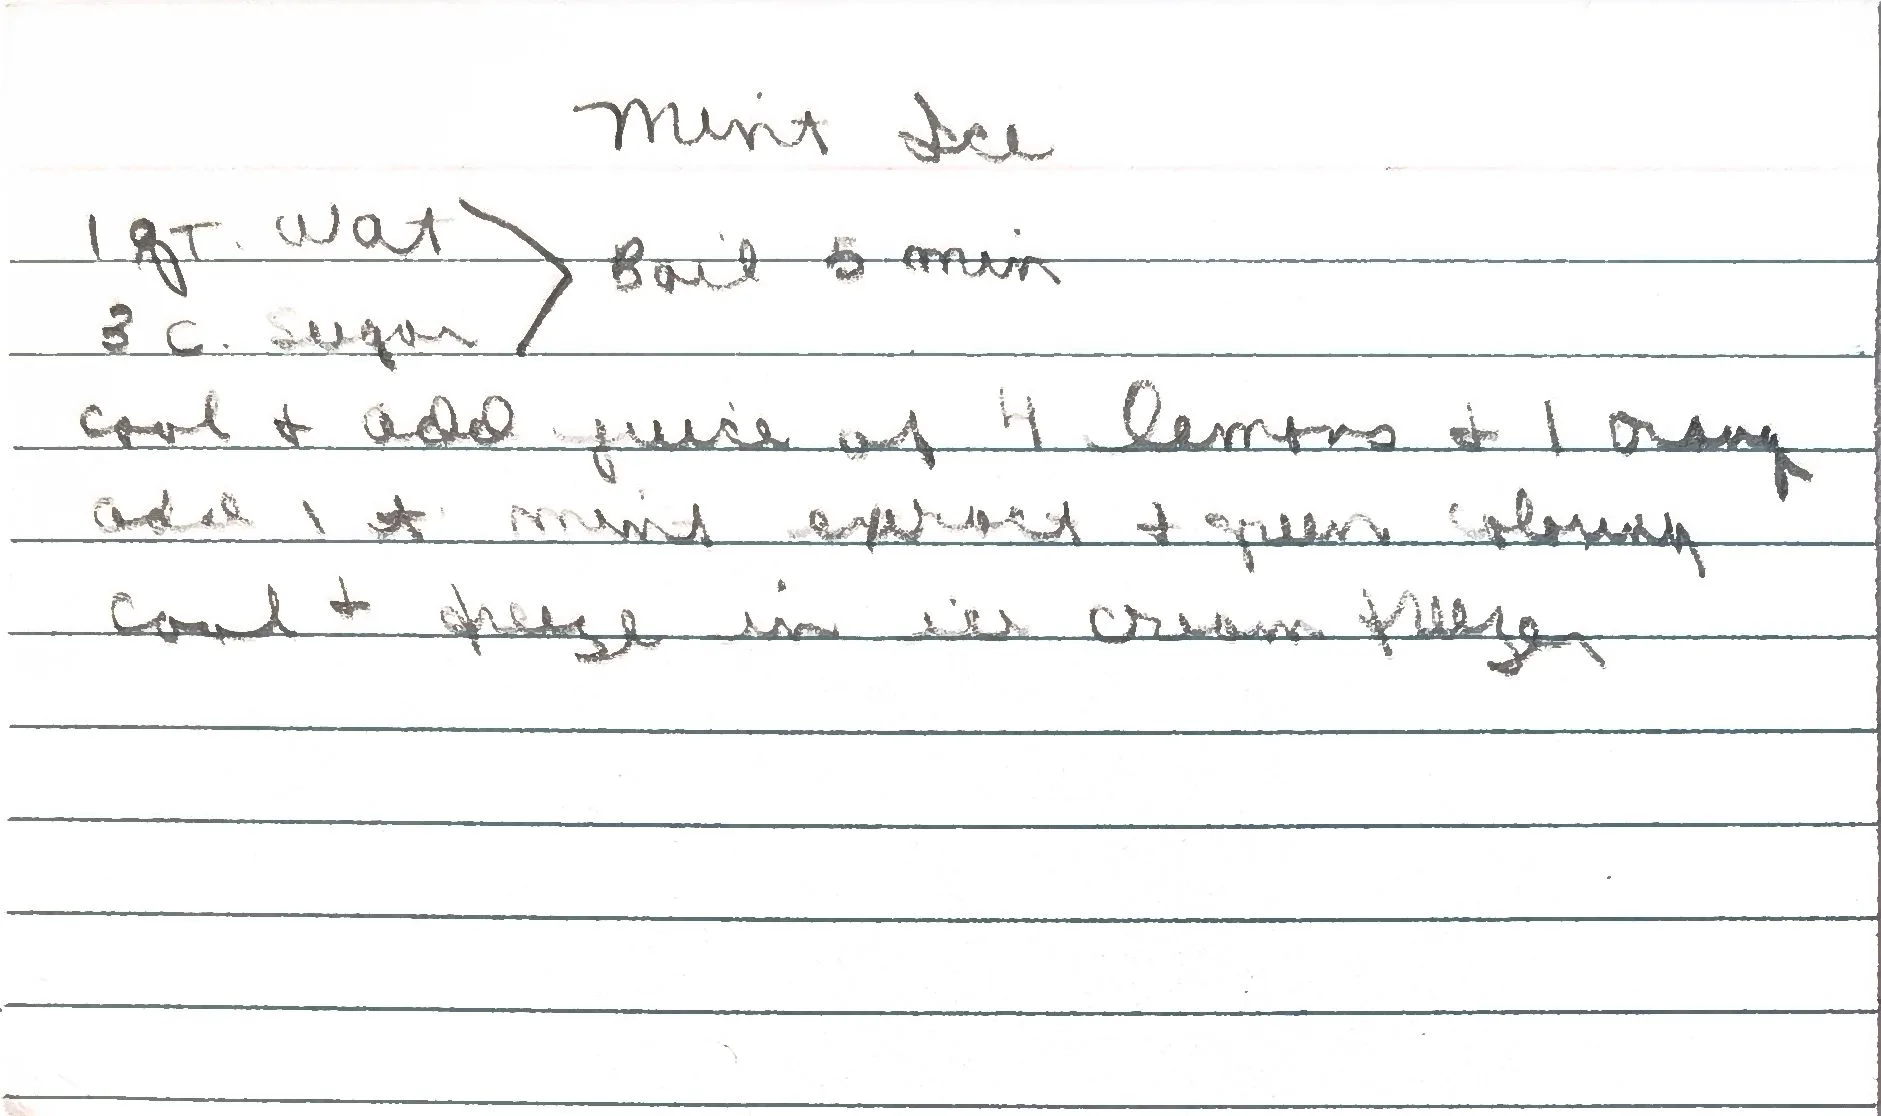 Mint Ice
1 qt. Wat
3 c. Sugar
Boil 5 min
cool + add juice of 4 lemons + 1 orang
add 1 t mint extract + green coloring
cool + freeze in ice cream freezer